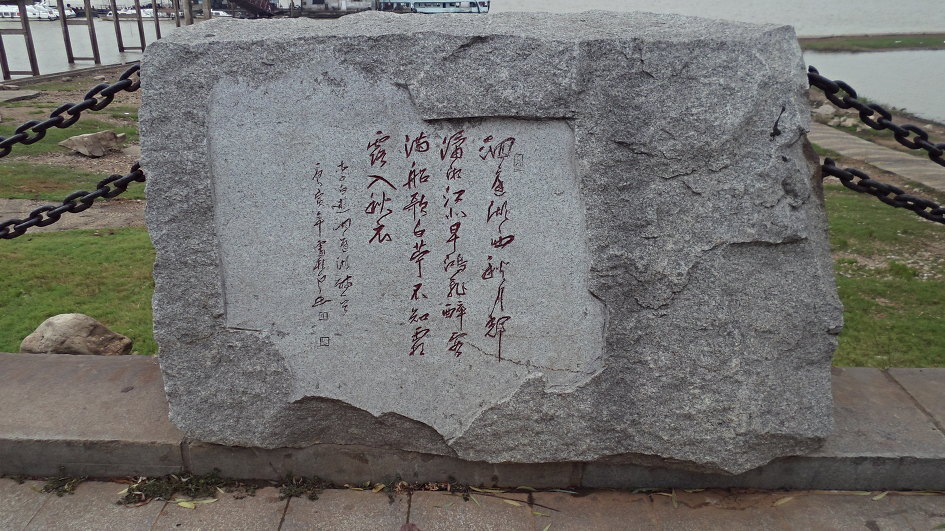 洞庭湖西秋月輝
瀟湘江北早鴻飛醉客
滿船歌白苧不知霜
露入秋衣
李白遊洞庭湖
庚寅年